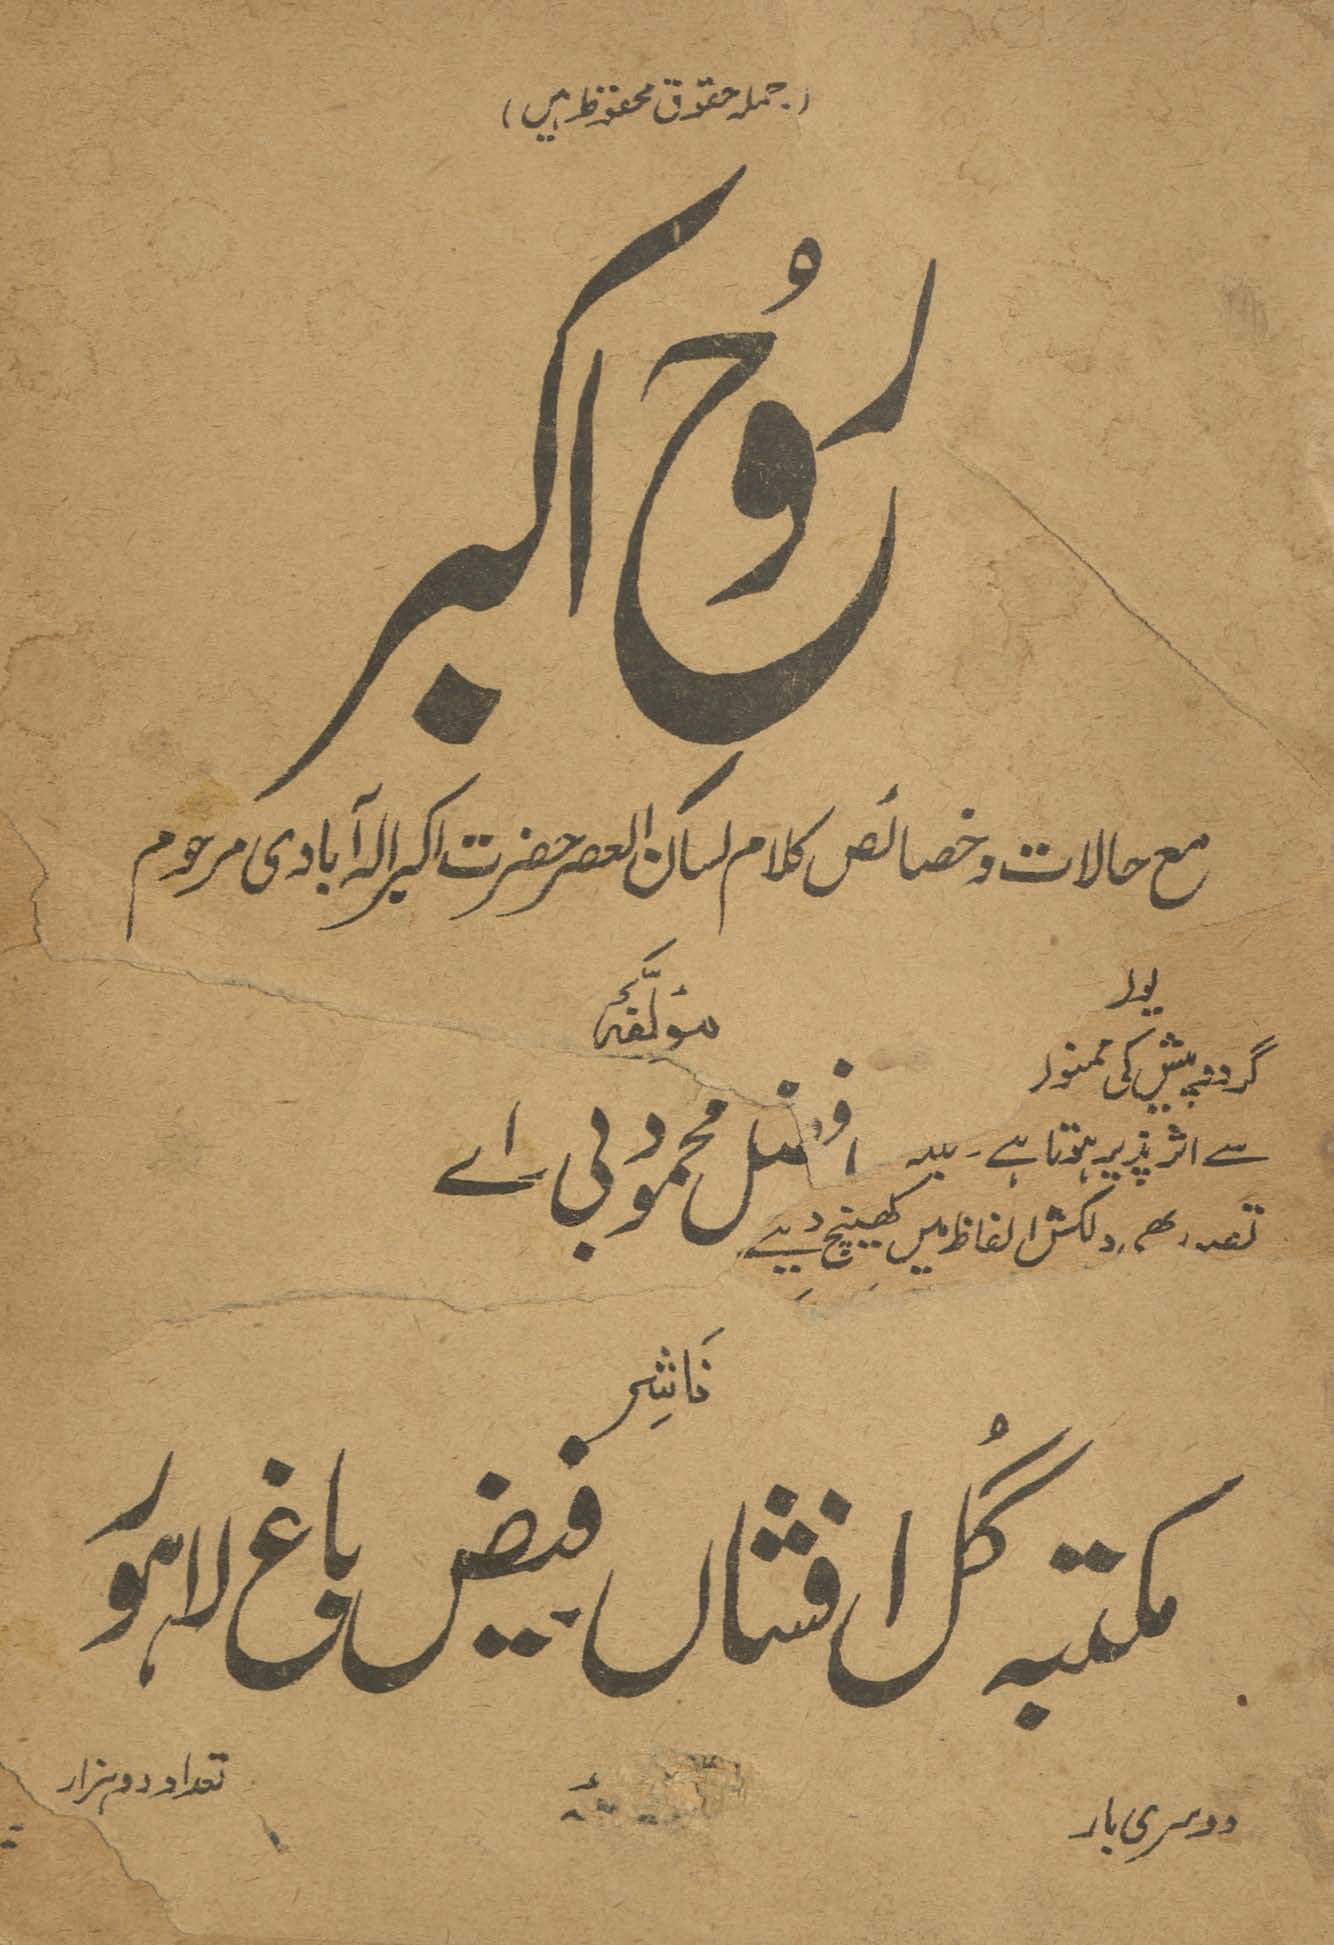 (جملہ حقوق محفوظ ہیں)
رُوحِ اکبر
مع حالات و خصائص کلام لسان العصر حضرت اکبر الہ آبادی مرحوم
مؤلفہ
افضل محمود بی اے
گرد و پیش کی
سے اثر پذیر ہوتا ہے۔
دلکش الفاظ میں کھینچ دیے
ناشر
مکتبہ گُل افشاں فیض باغ لاہور
دوسری بار
تعداد دو ہزار